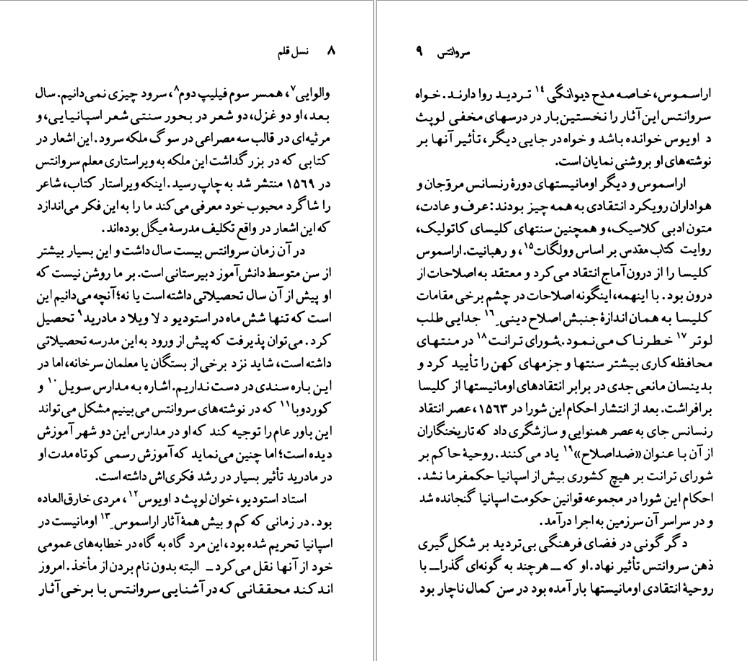 ۸ نسل قلم
والوایی۷، همسر سوم فیلیپ دوم۸، سرود چیزی نمی‌دانیم. سال
بعد، او دو غزل، دو شعر در بحور سنتی شعر اسپانیایی، و
مرثیه‌ای در قالب سه مصراعی در سوگ ملکه سرود. این اشعار در
کتابی که در بزرگداشت این ملکه به ویراستاری معلم سروانتس
در ۱۵۶۹ منتشر شد به چاپ رسید. اینکه ویراستار کتاب، شاعر
را شاگرد محبوب خود معرفی می‌کند ما را به این فکر می‌اندازد
که این اشعار در واقع تکلیف مدرسهٔ میگل بوده‌اند.
در آن زمان سروانتس بیست سال داشت و این بسیار بیشتر
از سن متوسط دانش‌آموز دبیرستانی است. بر ما روشن نیست که
او پیش از آن سال تحصیلاتی داشته است یا نه؛ آنچه می‌دانیم این
است که تنها شش ماه در استودیو د لا ویلا د مادرید۹ تحصیل
کرد. می‌توان پذیرفت که پیش از ورود به این مدرسه تحصیلاتی
داشته است، شاید نزد برخی از بستگان یا معلمان سرخانه، اما در
این باره سندی در دست نداریم. اشاره به مدارس سویل۱۰ و
کوردوبا۱۱ که در نوشته‌های سروانتس می‌بینیم مشکل می‌تواند
این باور عام را توجیه کند که او در مدارس این دو شهر آموزش
دیده است؛ اما چنین می‌نماید که آموزش رسمی کوتاه مدت او
در مادرید تأثیر بسیار در رشد فکری‌اش داشته است.
استاد استودیو، خوان لوپث د اویوس۱۲، مردی خارق‌العاده
بود. در زمانی که کم و بیش همهٔ آثار اراسموس۱۳ اومانیست در
اسپانیا تحریم شده بود، این مرد گاه به گاه در خطابه‌های عمومی
خود از آنها نقل می‌کرد ــ البته بدون نام بردن از مأخذ. امروز
اندکند محققانی که در آشنایی سروانتس با برخی آثار
سروانتس ۹
اراسموس، خاصه مدح دیوانگی۱۴ تردید روا دارند. خواه
سروانتس این آثار را نخستین بار در درسهای مخفی لوپث
د اویوس خوانده باشد و خواه در جایی دیگر، تأثیر آنها بر
نوشته‌های او بروشنی نمایان است.
اراسموس و دیگر اومانیستهای دورهٔ رنسانس مروّجان و
هواداران رویکرد انتقادی به همه چیز بودند: عرف و عادت،
متون ادبی کلاسیک، و همچنین سنتهای کلیسای کاتولیک،
روایت کتاب مقدس بر اساس وولگات۱۵، و رهبانیت. اراسموس
کلیسا را از درون آماج انتقاد می‌کرد و معتقد به اصلاحات از
درون بود. با اینهمه، اینگونه اصلاحات در چشم برخی مقامات
کلیسا به همان اندازهٔ جنبش اصلاح دینی۱۶ جدایی طلب
لوتر۱۷ خطرناک می‌نمود. شورای ترانت۱۸ در منتهای
محافظه‌کاری بیشتر سنتها و جزمهای کهن را تأیید کرد و
بدینسان مانعی جدی در برابر انتقادهای اومانیستها از کلیسا
برافراشت. بعد از انتشار احکام این شورا در ۱۵۶۳، عصر انتقاد
رنسانس جای به عصر همنوایی و سازشگری داد که تاریخنگاران
از آن با عنوان «ضداصلاح»۱۹ یاد می‌کنند. روحیهٔ حاکم بر
شورای ترانت بر هیچ کشوری بیش از اسپانیا حکمفرما نشد.
احکام این شورا در مجموعه قوانین حکومت اسپانیا گنجانده شد
و در سراسر آن سرزمین به اجرا درآمد.
دگرگونی در فضای فرهنگی بی‌تردید بر شکل‌گیری
ذهن سروانتس تأثیر نهاد. او که ــ هرچند به گونه‌ای گذرا ــ با
روحیهٔ انتقادی اومانیستها بار آمده بود در سن کمال ناچار بود